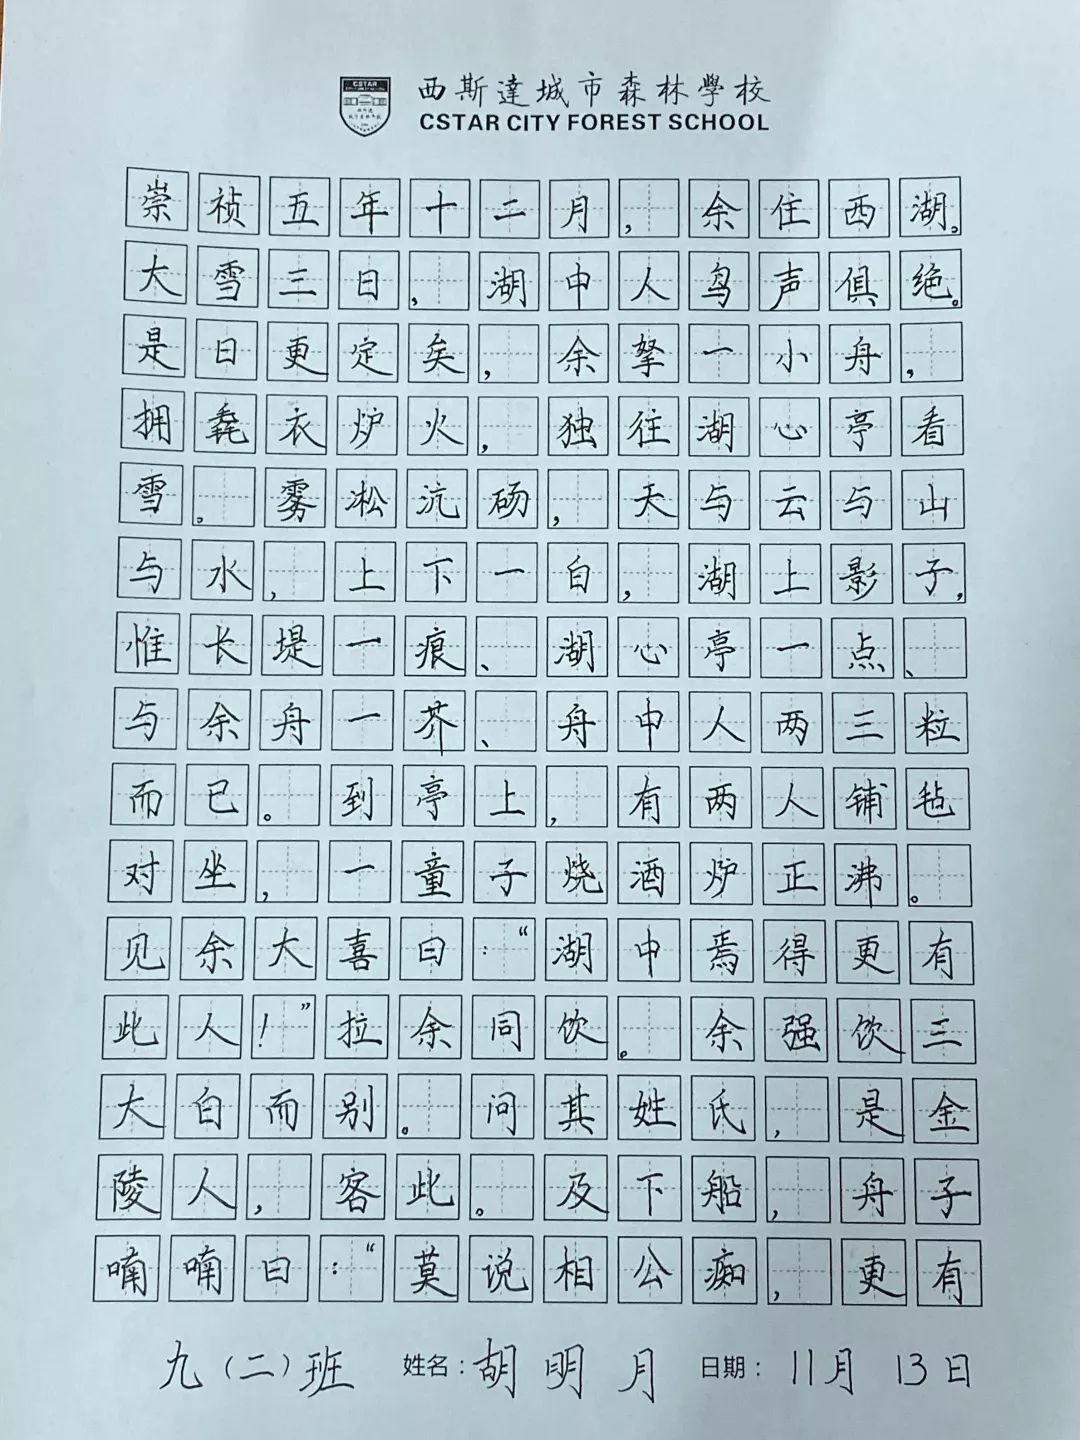 西斯達城市森林學校
CSTAR CITY FOREST SCHOOL
崇祯五年十二月，余住西湖。
大雪三日，湖中人鸟声俱绝。
是日更定矣，余拏一小舟，
拥毳衣炉火，独往湖心亭看
雪。雾凇沆砀，天与云与山
与水，上下一白，湖上影子，
惟长堤一痕、湖心亭一点、
与余舟一芥、舟中人两三粒
而已。到亭上，有两人铺毡
对坐，一童子烧酒炉正沸。
见余大喜曰：“湖中焉得更有
此人！”拉余同饮。余强饮三
大白而别。问其姓氏，是金
陵人，客此。及下船，舟子
喃喃曰：“莫说相公痴，更有
九（二）班 姓名：胡明月 日期：11月13日